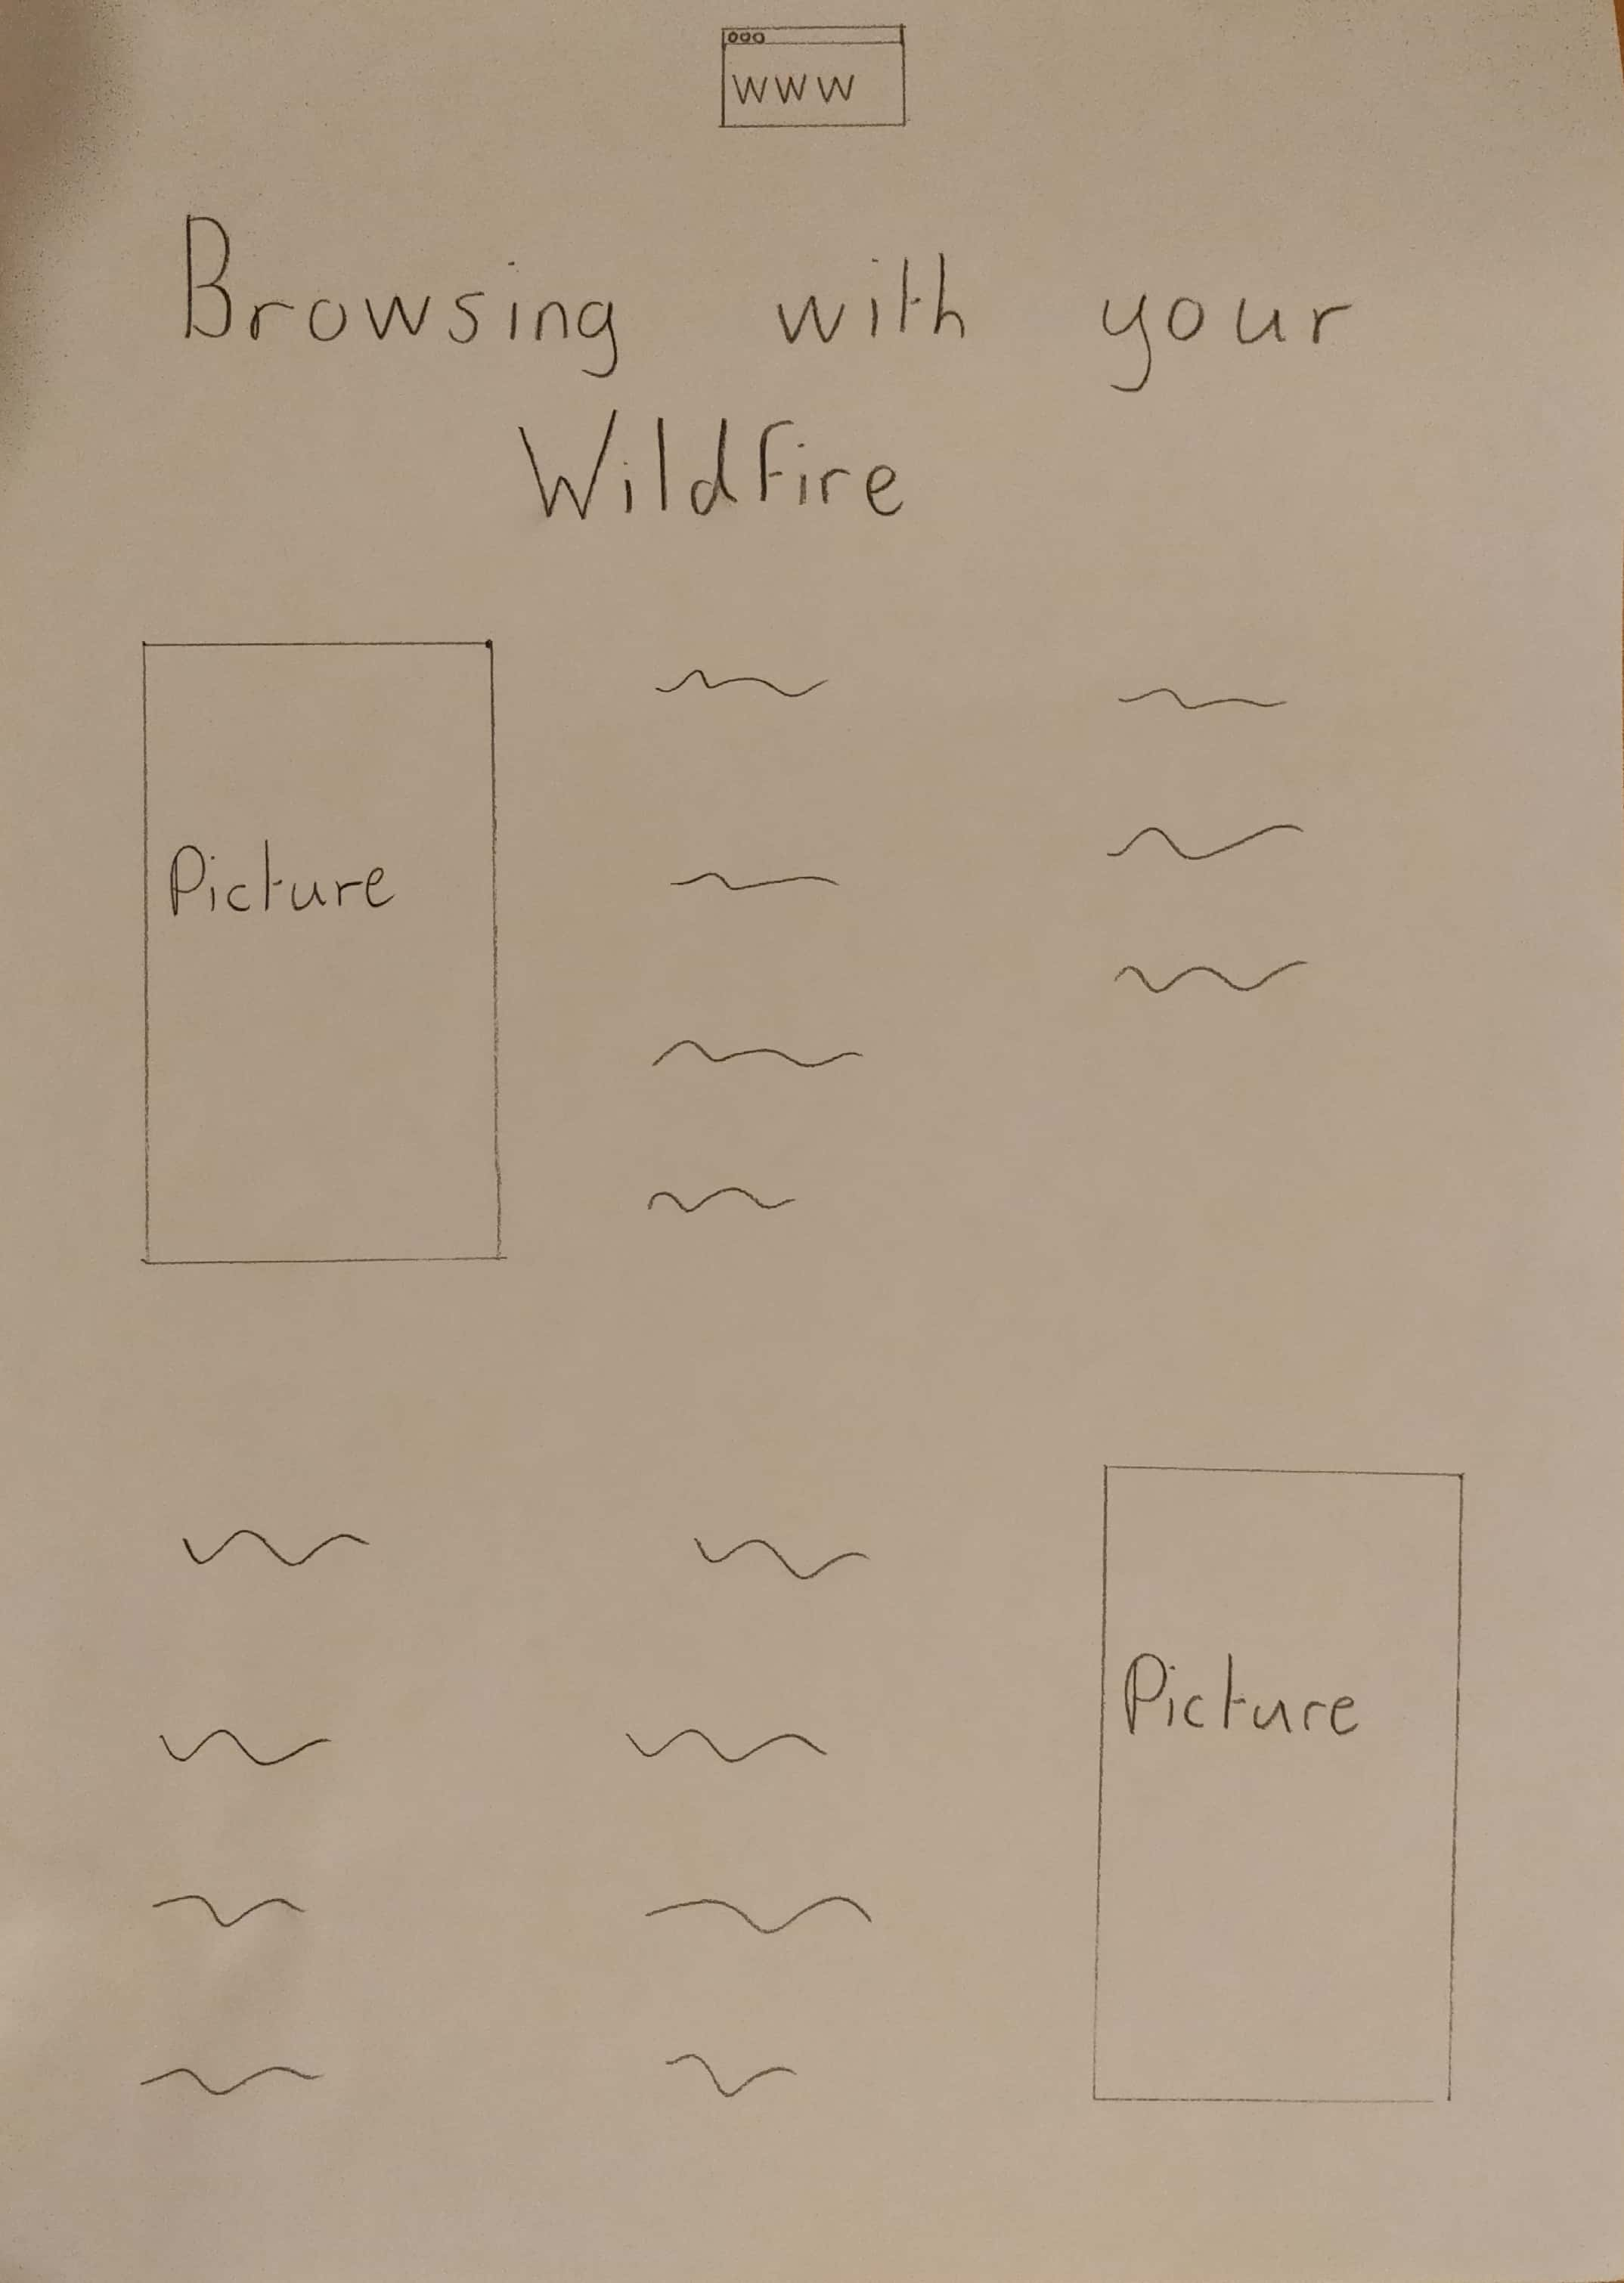 WWW
Browsing with your
Wildfire
Picture
Picture